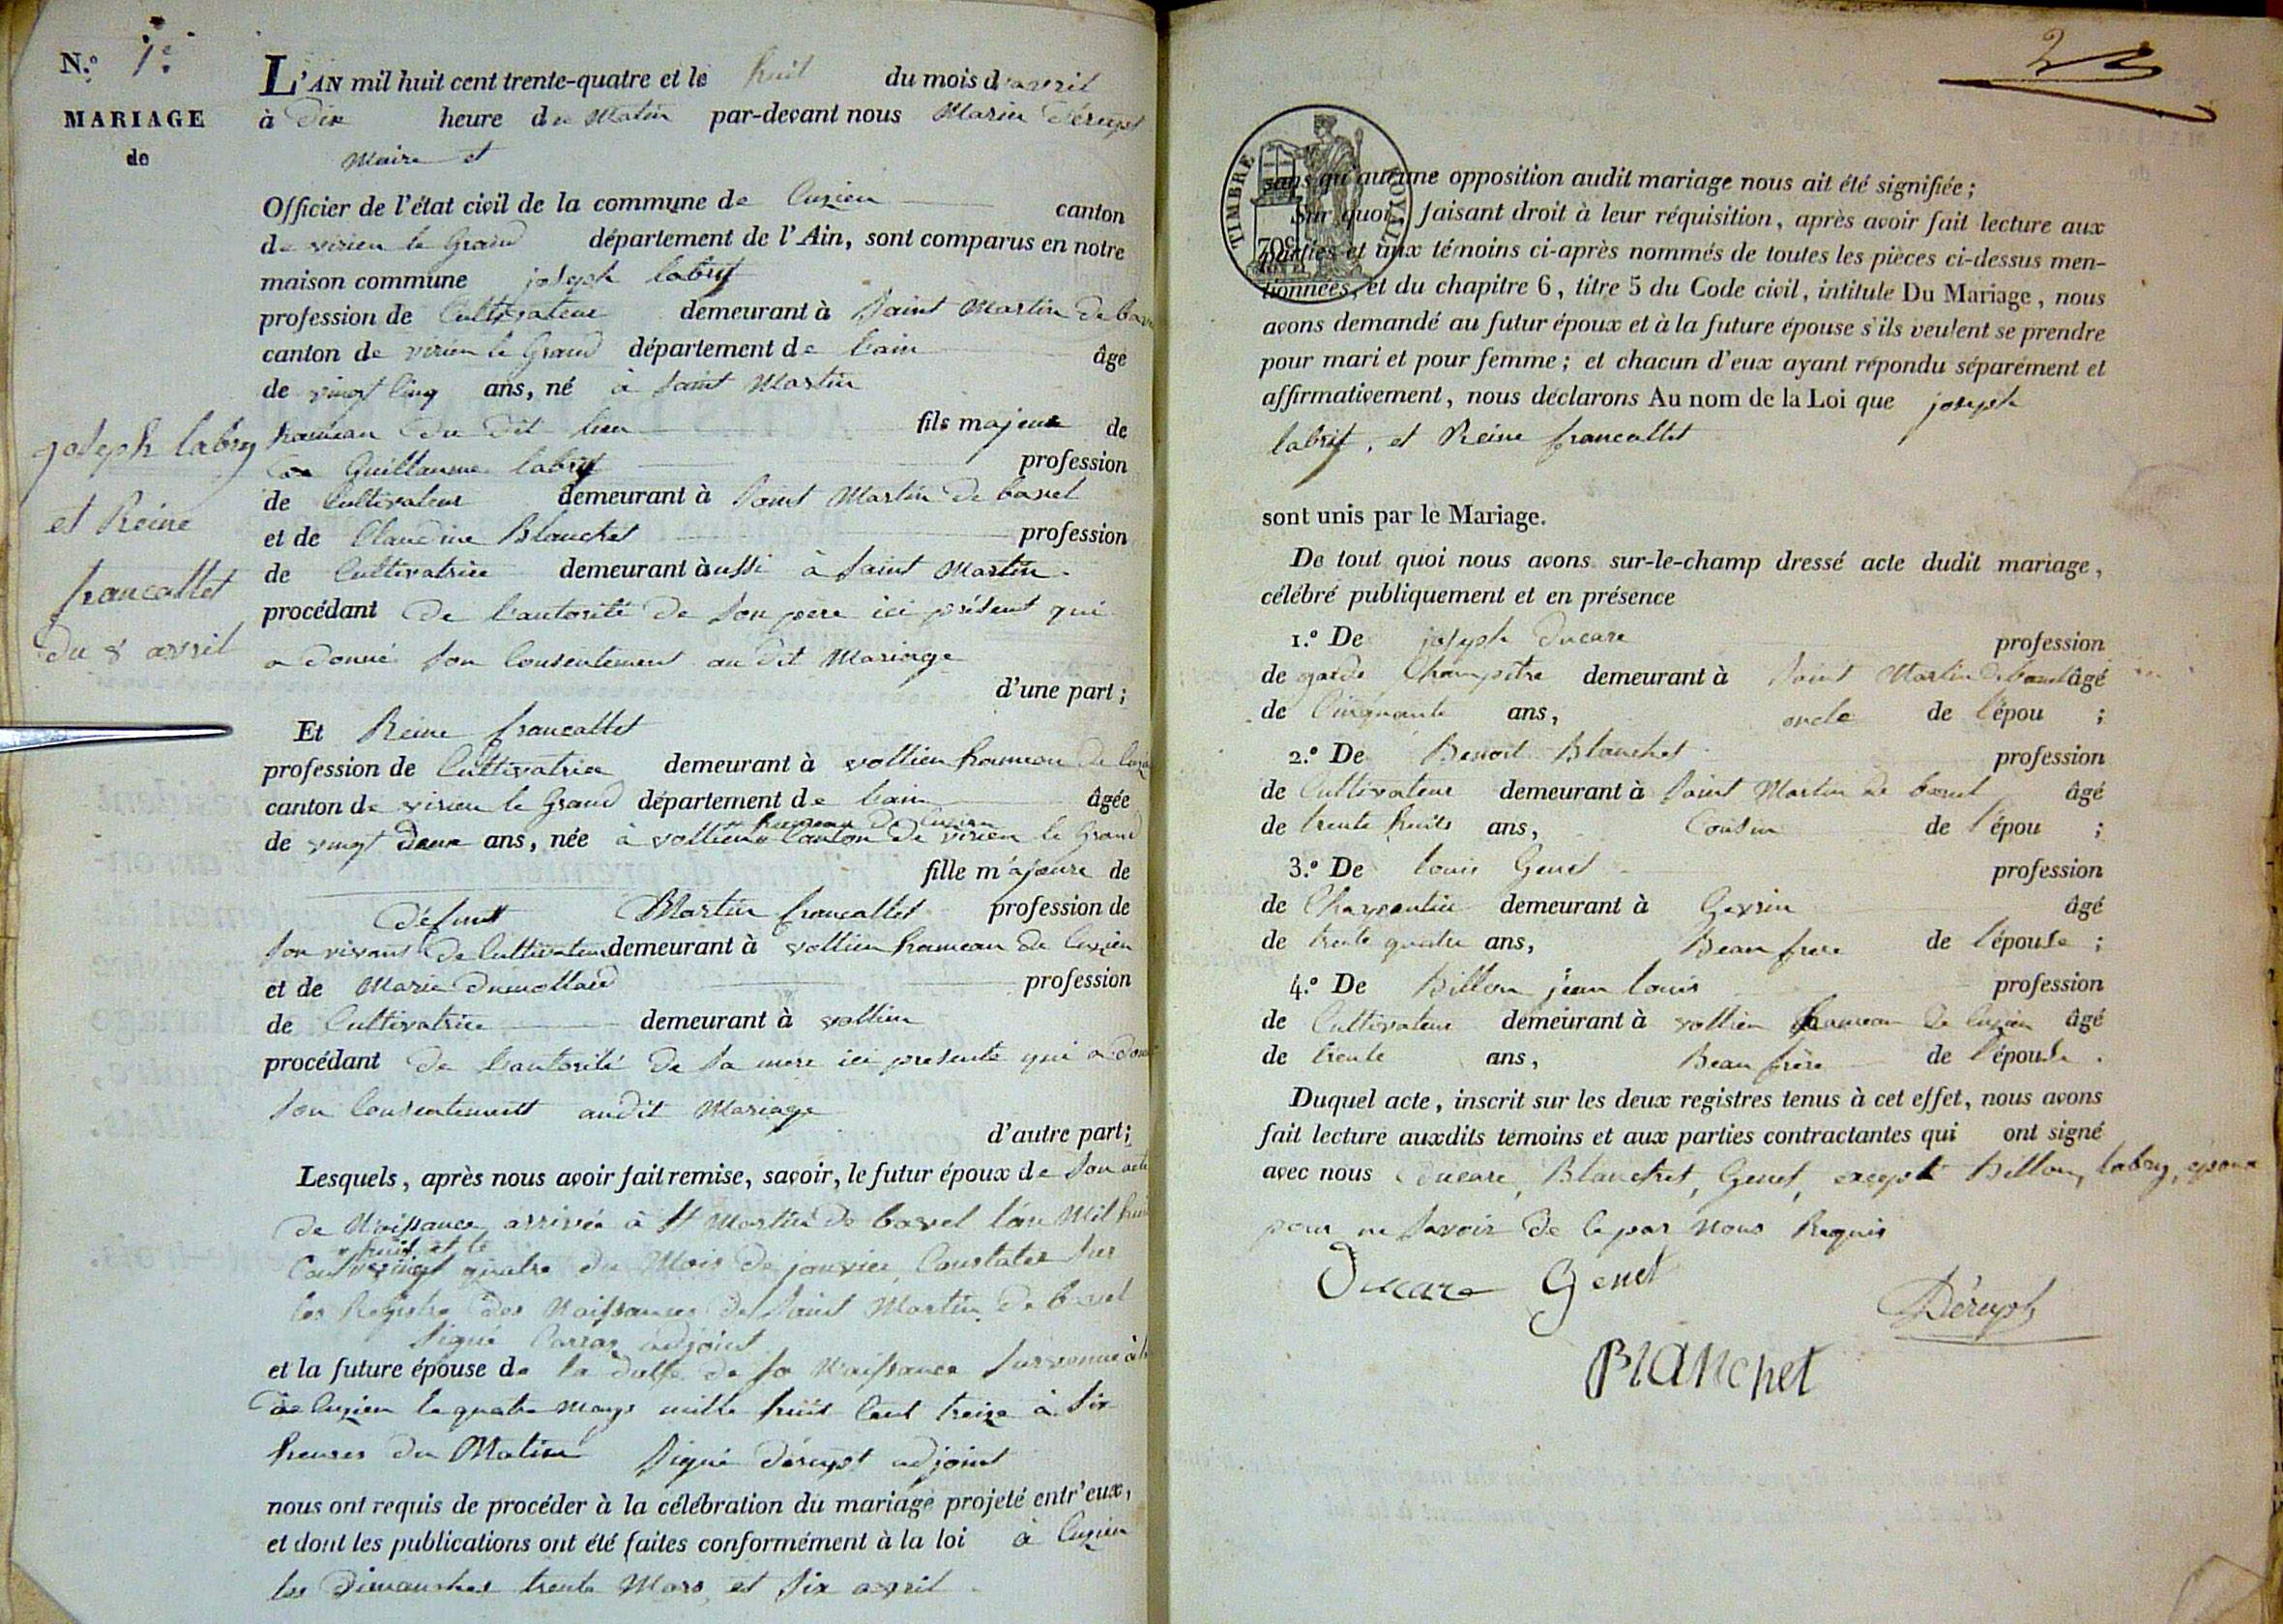 N.º 1.er
MARIAGE
de
joseph labry
et Reine
francallet
du 8 avril
L'AN mil huit cent trente-quatre et le huit du mois d'avril
à dix heure du Matin par-devant nous Marin Déruyst
Maire et
Officier de l'état civil de la commune de Cuzieu canton
de virieu le Grand département de l'Ain, sont comparus en notre
maison commune joseph labry
profession de Cultivateur demeurant à Saint Martin de bavel
canton de virieu le Grand département de lain âgé
de vingt cinq ans, né à Saint Martin
hameau du dit lieu fils majeur de
de Guillaume labry profession
de Cultivateur demeurant à Saint Martin de bavel
et de Claudine Blanchet profession
de Cultivatrice demeurant aussi à Saint Martin
procédant de l'autorité de Son pere ici présent qui
a donné Son Consentement au dit Mariage
d'une part;
Et Reine francallet
profession de Cultivatrice demeurant à vollien hameau de
canton de virieu le Grand département de lain âgée
hameau de Cuzieu
de vingt deux ans, née à vollien Canton de virieu le Grand
fille majeure de
défunt Martin francallet profession de
Son vivant de Cultivateur demeurant à vollien hameau de Cuzieu
et de Marie profession
de Cultivatrice demeurant à vollien
procédant de l'autorité de Sa mere ici presente qui a
Son Consentement audit Mariage
d'autre part;
Lesquels, après nous avoir fait remise, savoir, le futur époux de Son acte
de Naissance arrivée à St Martin de bavel l'an Mil huit
huit et le
Cent vingt quatre du Mois de janvier Constater Sur
les Registre des Naissances de Saint Martin de bavel
Signé adjoint
et la future épouse de la datte de Sa Naissance Survenue
de Cuzieu le quatre mars mille huit Cent treize à Six
heures du Matin Signé déruyst adjoint
nous ont requis de procéder à la célébration du mariage projeté entr'eux,
et dont les publications ont été faites conformément à la loi à Cuzieu
les Dimanches trente Mars et Six avril
2
TIMBRE ROYAL
70c
sans qu'aucune opposition audit mariage nous ait été signifiée;
Sur quoi, faisant droit à leur réquisition, après avoir fait lecture aux
parties et aux témoins ci-après nommés de toutes les pièces ci-dessus men-
tionnées, et du chapitre 6, titre 5 du Code civil, intitule Du Mariage, nous
avons demandé au futur époux et à la future épouse s'ils veulent se prendre
pour mari et pour femme; et chacun d'eux ayant répondu séparément et
affirmativement, nous déclarons Au nom de la Loi que joseph
labry, et Reine francallet
sont unis par le Mariage.
De tout quoi nous avons sur-le-champ dressé acte dudit mariage,
célébré publiquement et en présence
1.º De joseph Ducare profession
de garde Champetre demeurant à Saint Martin de bavel âgé
de Cinquante ans, oncle de l'épou ;
2.º De Benoit Blanchet profession
de Cultivateur demeurant à Saint Martin de bavel âgé
de trente huits ans, Cousin de l'épou ;
3.º De louis Genet profession
de Charpentier demeurant à âgé
de trente quatre ans, Beau frere de l'épouse ;
4.º De Billon jean louis profession
de Cultivateur demeurant à vollien hameau de Cuzieu âgé
de trente ans, Beau frère de l'épouse .
Duquel acte, inscrit sur les deux registres tenus à cet effet, nous avons
fait lecture auxdits témoins et aux parties contractantes qui ont signé
avec nous Ducare, Blanchet, Genet, excepté Billon, labry, epoux
pour ne Savoir de le par Nous Requis
Ducare Genet
Déruyst
Blanchet